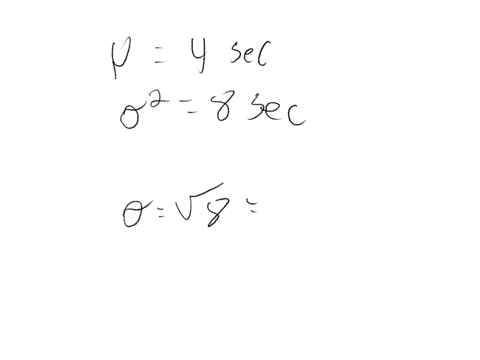 μ = 4 sec
σ² = 8 sec
σ = √8 =